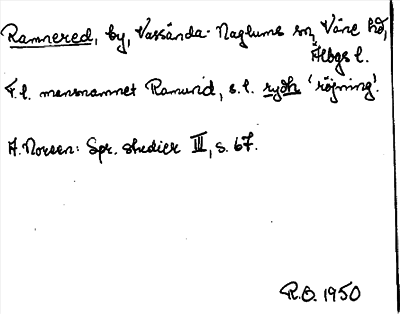 Ramnered, by, Vassända-Naglums sn, Väne hd,
Älbgs l.
F.l. mansnamnet Ramund, s.l. rydh 'röjning'.
A. Noreen: Spr. studier III, s. 67.
R.O. 1950